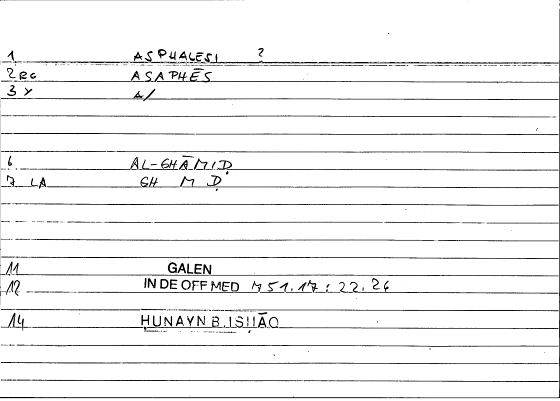 1 ASPHALESI ?
2RG ASAPHĒS
3 Y A/
6 AL-GHĀMIḌ
7 LA GH M Ḍ
11 GALEN
12 IN DE OFF MED M 51.17 : 22.26
14 HUNAYN B. ISḤĀQ